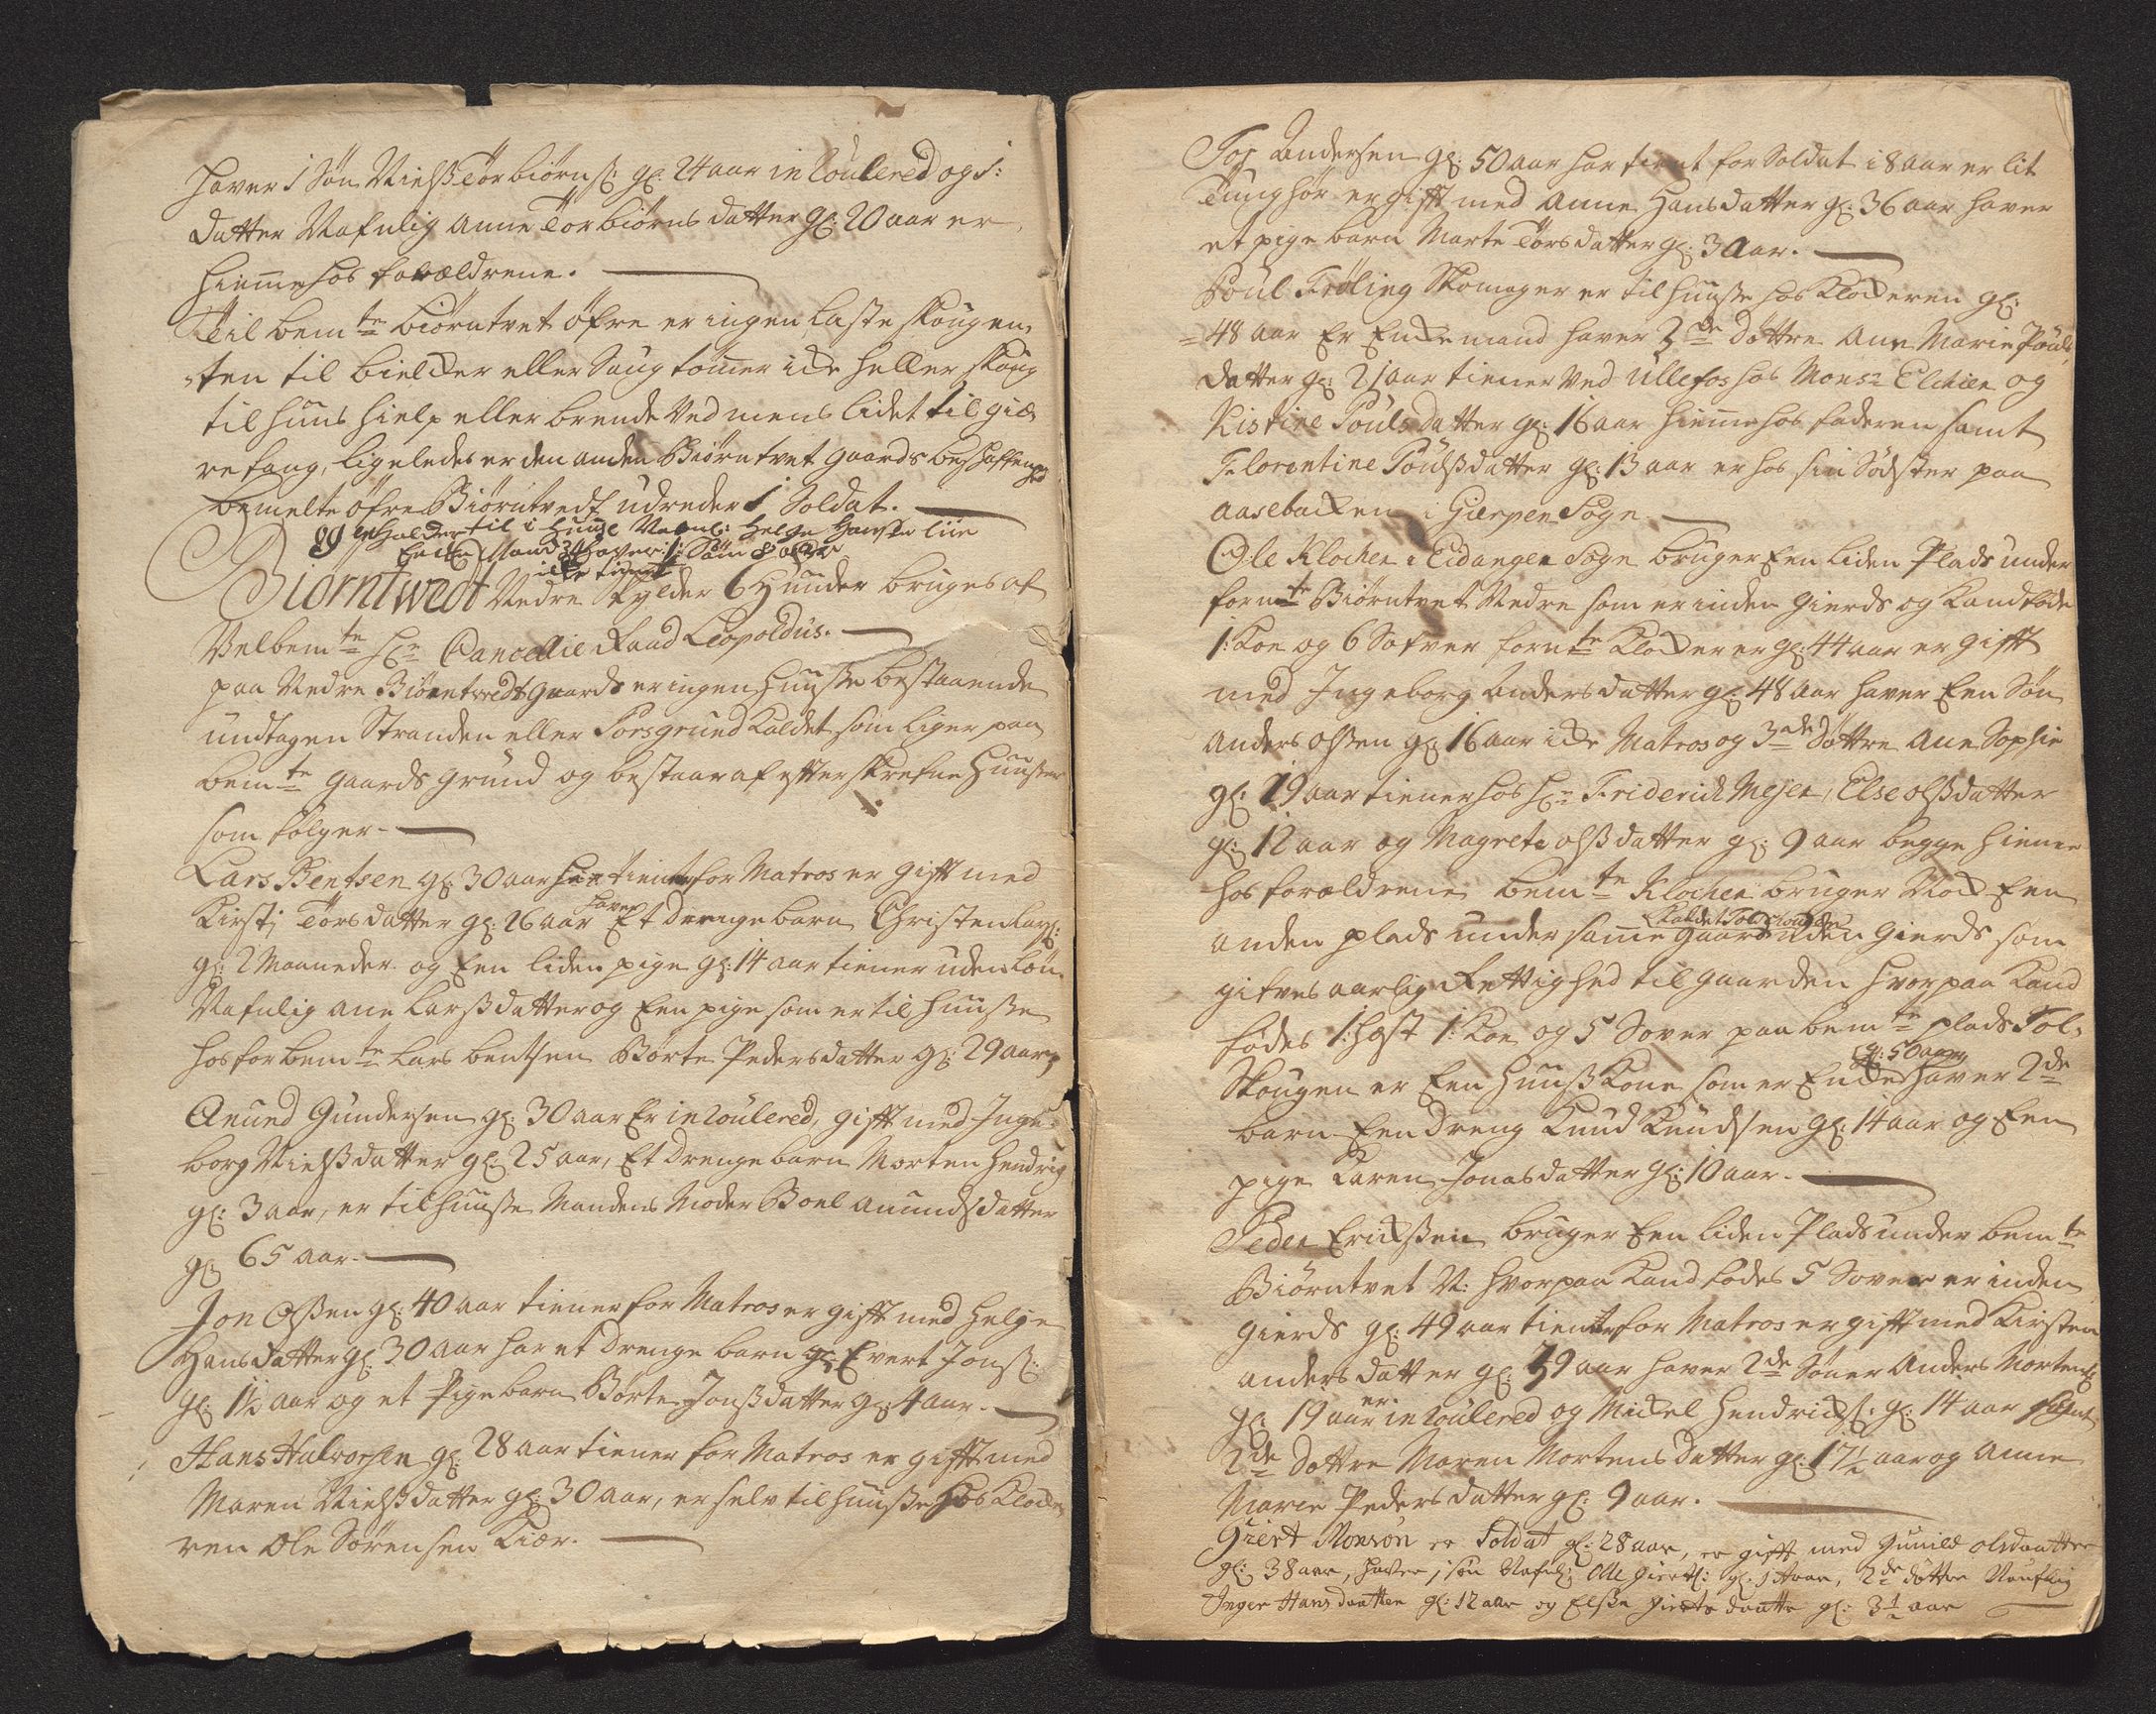 haver 1 Søn Nielß Torbiørnß: gl: 24 aar inroulered og 1:
datter Nafnlig Anne Torbiørns datter gl: 20 aar er
hiemme hos forældrene.
Til bemte Biørntvet øfre er ingen laste skougen,
ten til bielcker eller Saug tømmer icke heller skoug
til huus hielp eller brende Ved mens lidet til giæ
refang, ligeledes er den anden Biørntvet gaards beschaffenhed
bemelte øfre Biørntvedt udreder 1 Soldat.
og opholder til i Huuse Nafnl: Helge Hansen liie
Encke Mand haver 1: Søn 8 aar
icke tient
Biørntwedt Nedre Skylder 6 Huuder bruges af
Velbemte Hr: Cancellie Raad Leopoldus.
paa Nedre Biørntwedt gaards er ingen Huuße bestaaende
undtagen Stranden eller Porsgrund kaldet som liger paa
bemte gaards grund og bestaar af efterskrefne Huuser
som følger
Lars Bentsen gl: 30 aar har tient for Matros er gift med
Kirsti Torsdatter gl: 26 aar haver Et drenge barn Christen Larß:
gl: 2 Maaneder og Een liden pige gl: 14 aar tiener uden løn
Nafnlig Ane Larßdatter og Een pige som er til huuße
hos forbemte Lars Bentsen Børte Pedersdatter gl: 29 aar
Anund Gundersen gl: 30 aar Er inroulered, gift med Inge
borg Nielßdatter gl: 25 aar, Et drenge barn Morten Hendrig
gl: 3 aar, er til huuße Mandens Moder Boel Anundsdatter
gl: 65 aar.
Jon Olßen gl: 40 aar tiener for Matros er gift med Helge
Hansdatter gl: 30 aar har et drenge barn Evert Jonß:
gl: 1½ aar og et Pige barn Børte Jonßdatter gl: 4 aar.
Hans Halvorsen gl: 28 aar tiener for Matros er gifft med
Maren Nielßdatter gl: 30 aar, er selv til huuße hos Klocke
ren Ole Sørensen Kiær.
Tor Andersen gl: 50 aar har tient for Soldat i 8 aar er lit
Tunghør er gifft med Anne Hansdatter gl: 36 aar haver
et pige barn Marte Torsdatter gl: 3 aar.
Poul Frøling Skomager er til huuße hos Klockeren gl:
48 aar Er Enckemand haver 3de døttre Ann Marie Pouls
datter gl: 21 aar tiener Ved Ullefos hos Monsr Elchien og
Kistine Poulsdatter gl: 16 aar hiemme hos faderen samt
Florentine Poulßdatter gl: 13 aar er hos sin Sødster paa
aasebacken i Gierpen Sogn
Ole Klocker i Eidanger Sogn bruger Een liden Plads under
fornte Biørntvet Nedre som er inden gierds og kand føde
1: Koe og 6 Sofver fornte Klocker er gl: 44 aar er gifft
med Ingeborg Andersdatter gl: 48 aar haver Een Søn
Anders Olßen gl: 16 aar icke Matros og 3de Døttre Ane Sophie
gl: 19 aar tiener hos Hr: Friderich Mejer, Else Olßdatter
gl: 12 aar og Magrete Olßdatter gl: 9 aar begge hieme
hos forældrene bemte Klocker bruger Nock Een
kaldet Tolskougen
anden plads under samme gaard uden gierds som
gifves aarlig Rettighed til gaarden hvorpaa kand
fødes 1: Hest 1: Koe og 5 Sover paa bemte plads Tol,
gl: 50 aar
Skougen er Een huuß kone som er Encke haver 2de
barn Een dreng Knud Knudsen gl: 14 aar og Een
pige Karen Jonasdatter gl: 10 aar.
Peder Erichßen bruger Een liden Plads under bemte
Biørntvet N: hvorpaa kand fødes 5 Sover er inden
gierds gl: 49 aar tient for Matros er gifft med Kirsten
Andersdatter gl: 39 aar haver 2de Sønner Anders Mortenß:
gl: 19 aar er inroulered og Mickel Hendrichß: gl: 14 aar samt
2de døttre Maren Mortensdatter gl: 17½ aar og Anne
Marie Pedersdatter gl: 9 aar.
Giert Monsøn er Soldat gl: 28 aar, er gift med Gunild Olsdaatter
gl: 38 aar, haver 1 søn Nafnlig Olle Giertß: gl: 1 ½ aar, 2de døttre Naufnlig
Inger Hansdaatter gl: 12 aar og Elße Giertsdaatter gl: 3½ aar